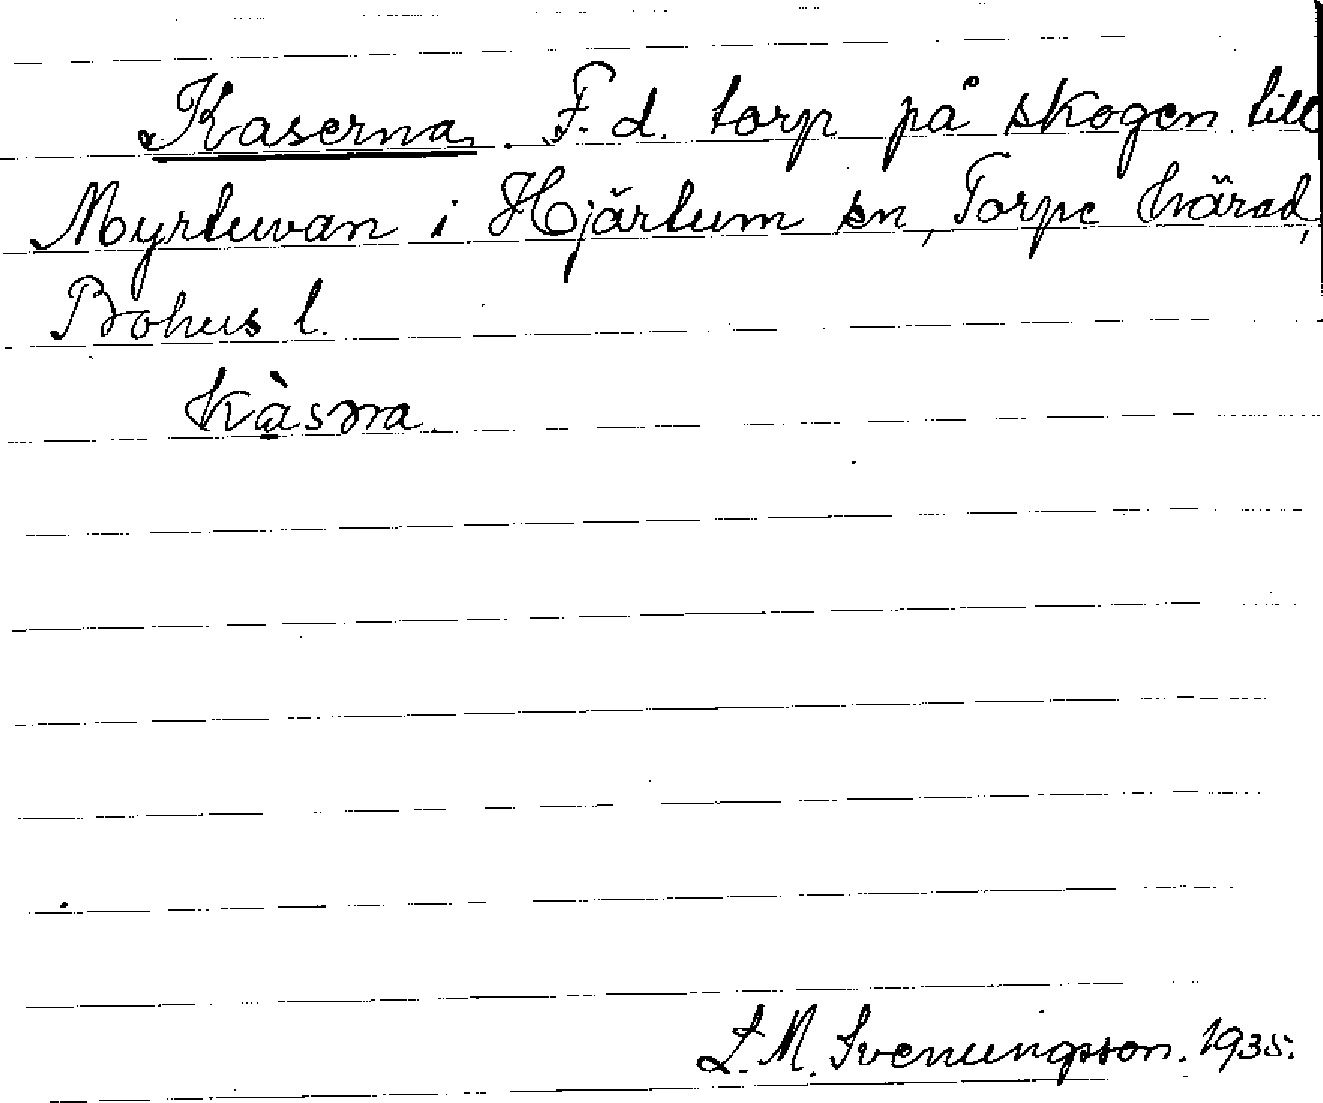 Kaserna. F.d. torp på skogen till
Myrtuvan i Hjärtum sn, Torpe härad,
Bohus l.
kàsṇa
L.M. Svenungsson. 1935.